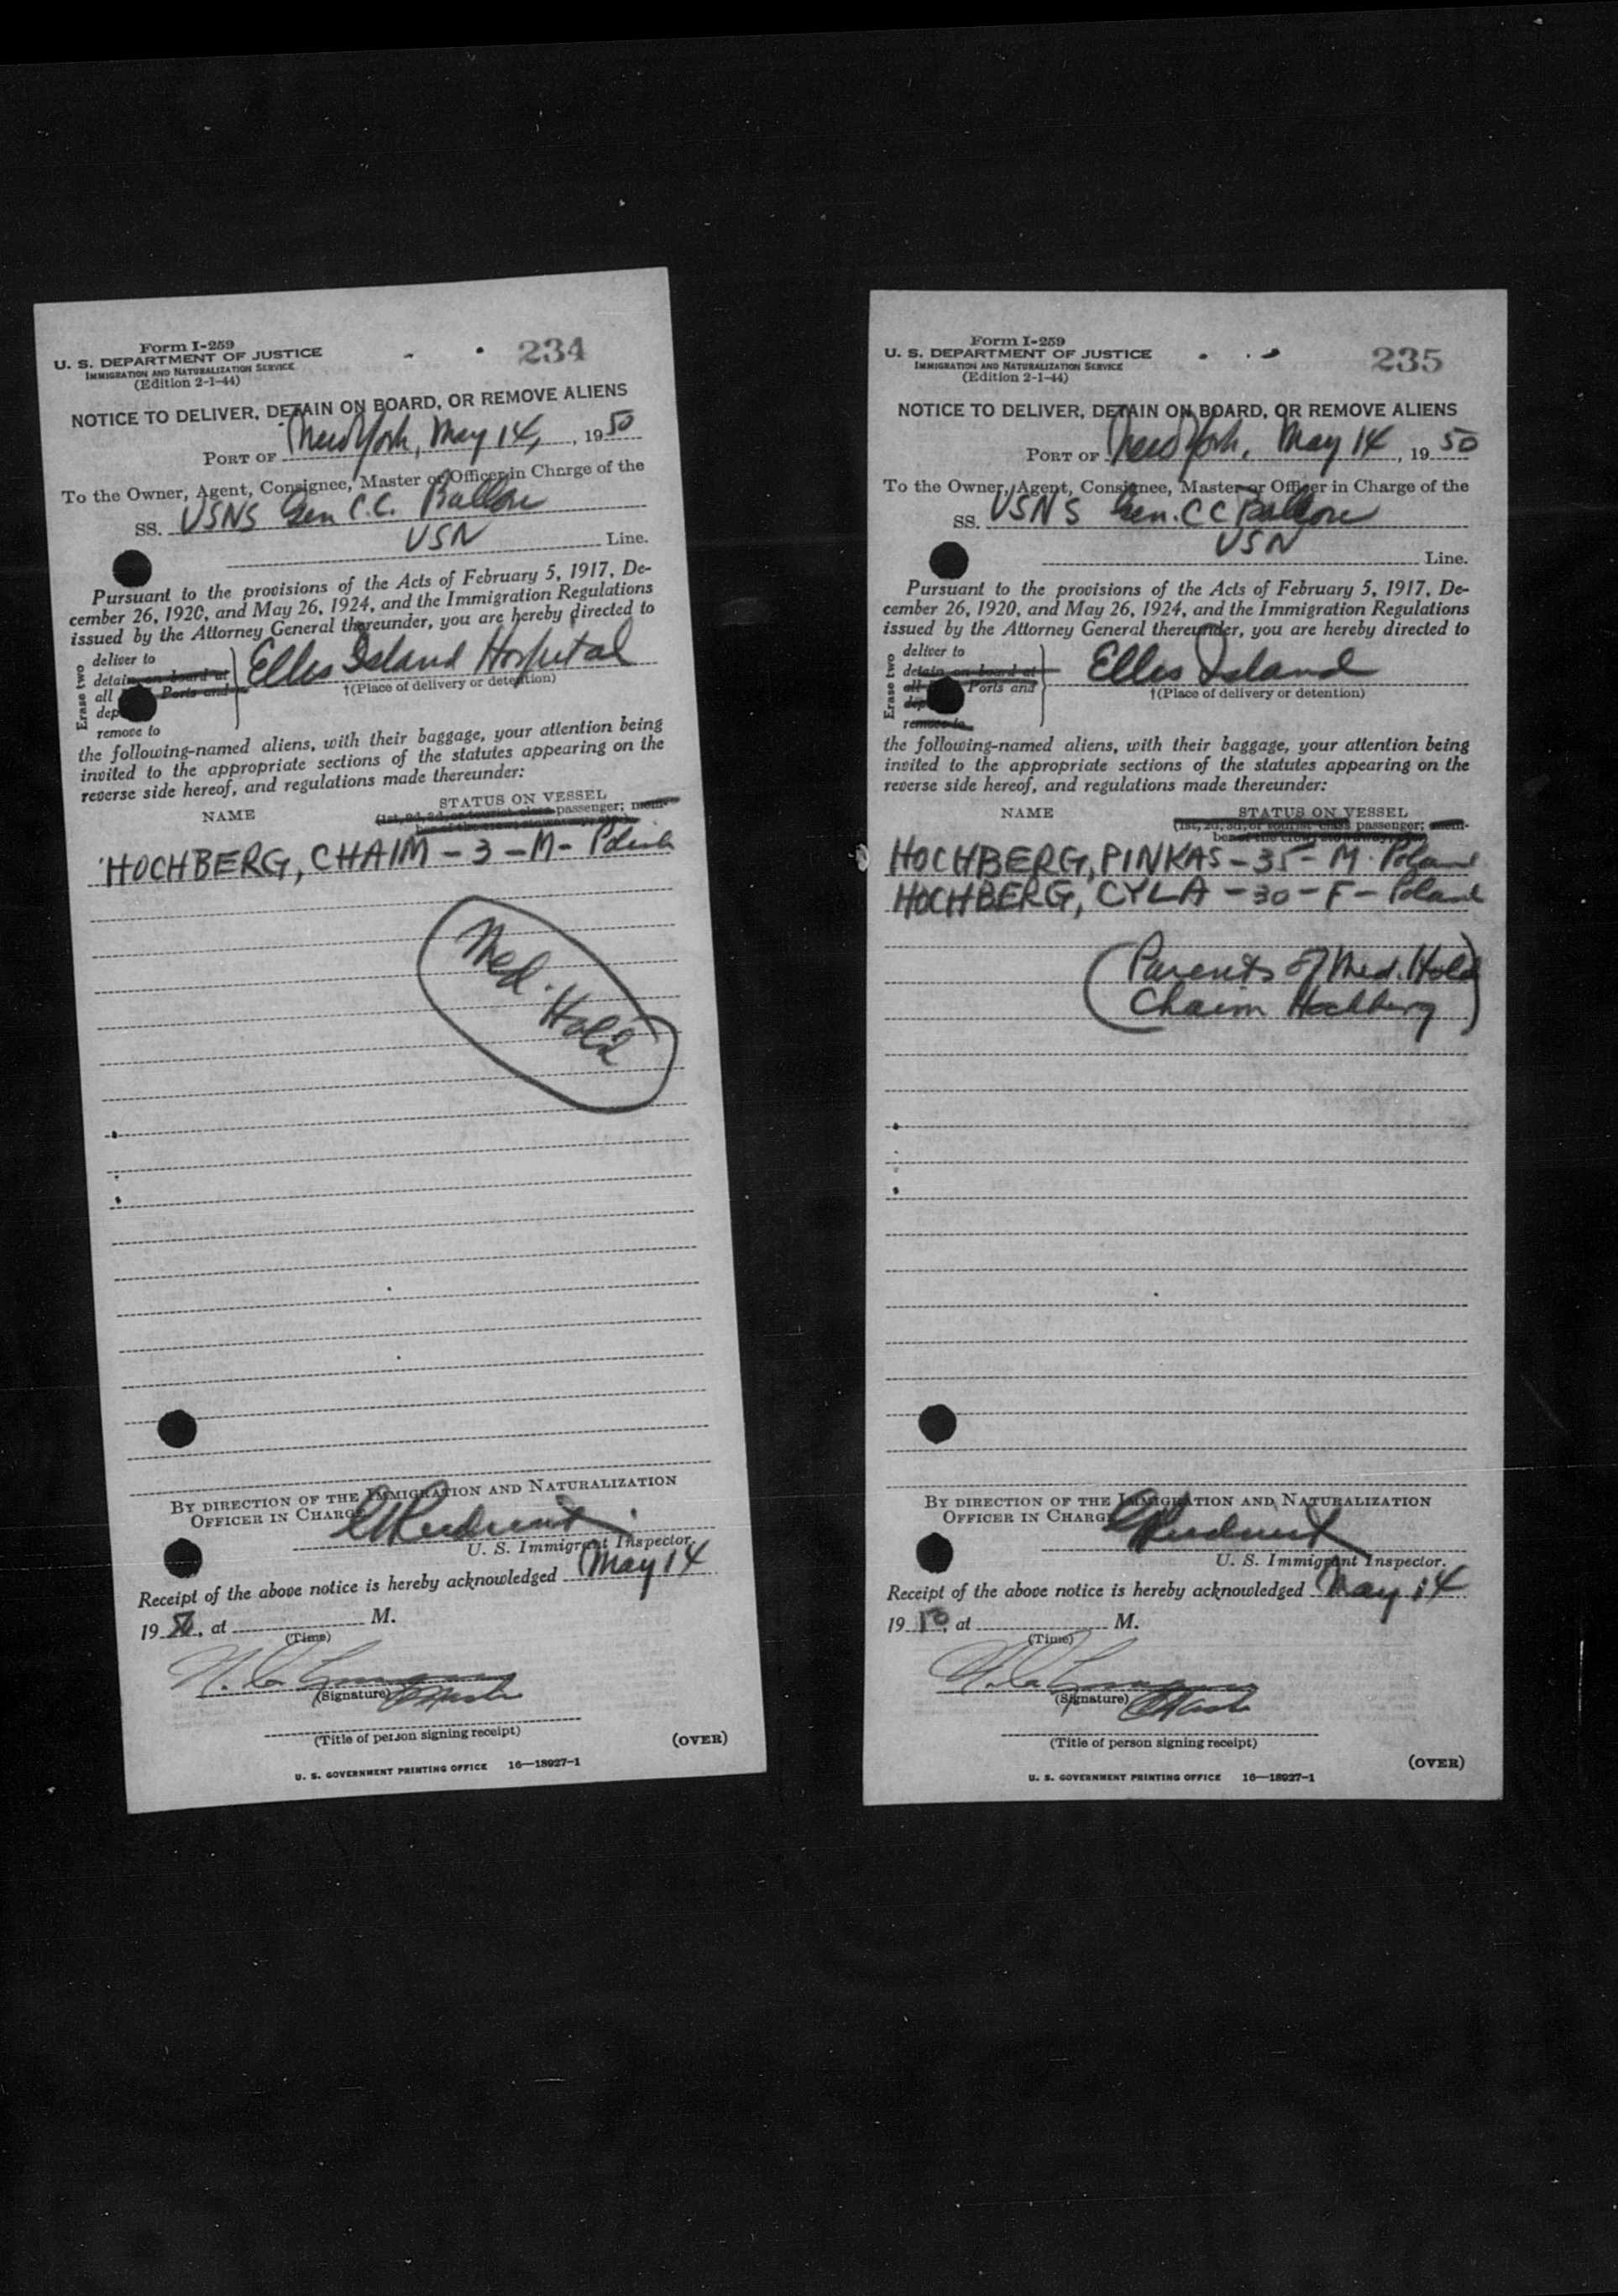 Form I-259
U. S. DEPARTMENT OF JUSTICE
IMMIGRATION AND NATURALIZATION SERVICE
(Edition 2-1-44)
234
NOTICE TO DELIVER, DETAIN ON BOARD, OR REMOVE ALIENS
PORT OF New York, May 14, , 19 50
To the Owner, Agent, Consignee, Master or Officer in Charge of the
SS. USNS Gen C.C. Ballou
USN Line.
Pursuant to the provisions of the Acts of February 5, 1917, De-
cember 26, 1920, and May 26, 1924, and the Immigration Regulations
issued by the Attorney General thereunder, you are hereby directed to
Erase two
deliver to
detain on board at
all Ports and
dep
remove to
Ellis Island Hospital
†(Place of delivery or detention)
the following-named aliens, with their baggage, your attention being
invited to the appropriate sections of the statutes appearing on the
reverse side hereof, and regulations made thereunder:
NAME STATUS ON VESSEL
(1st, 2d, 3d, or tourist class passenger; mem-
ber of the crew, stowaway, etc.)
HOCHBERG, CHAIM - 3 - M - Polish
Med. Hold
BY DIRECTION OF THE IMMIGRATION AND NATURALIZATION
OFFICER IN CHARGE
U. S. Immigrant Inspector.
Receipt of the above notice is hereby acknowledged May 14
19 50, at M.
(Time)
(Signature)
(Title of person signing receipt)
(OVER)
U. S. GOVERNMENT PRINTING OFFICE 16—18927-1
Form I-259
U. S. DEPARTMENT OF JUSTICE
IMMIGRATION AND NATURALIZATION SERVICE
(Edition 2-1-44)
235
NOTICE TO DELIVER, DETAIN ON BOARD, OR REMOVE ALIENS
PORT OF New York, May 14 , 19 50
To the Owner, Agent, Consignee, Master or Officer in Charge of the
SS. USNS Gen. C C Ballou
USN Line.
Pursuant to the provisions of the Acts of February 5, 1917, De-
cember 26, 1920, and May 26, 1924, and the Immigration Regulations
issued by the Attorney General thereunder, you are hereby directed to
Erase two
deliver to
detain on board at
all Ports and
dep
remove to
Ellis Island
†(Place of delivery or detention)
the following-named aliens, with their baggage, your attention being
invited to the appropriate sections of the statutes appearing on the
reverse side hereof, and regulations made thereunder:
NAME STATUS ON VESSEL
(1st, 2d, 3d, or tourist class passenger; mem-
ber of the crew, stowaway, etc.)
HOCHBERG, PINKAS - 35 - M - Poland
HOCHBERG, CYLA - 30 - F - Poland
(Parents of Med. Hold
Chaim Hochberg)
BY DIRECTION OF THE IMMIGRATION AND NATURALIZATION
OFFICER IN CHARGE
U. S. Immigrant Inspector.
Receipt of the above notice is hereby acknowledged May 14
19 50, at M.
(Time)
(Signature)
(Title of person signing receipt)
(OVER)
U. S. GOVERNMENT PRINTING OFFICE 16—18927-1